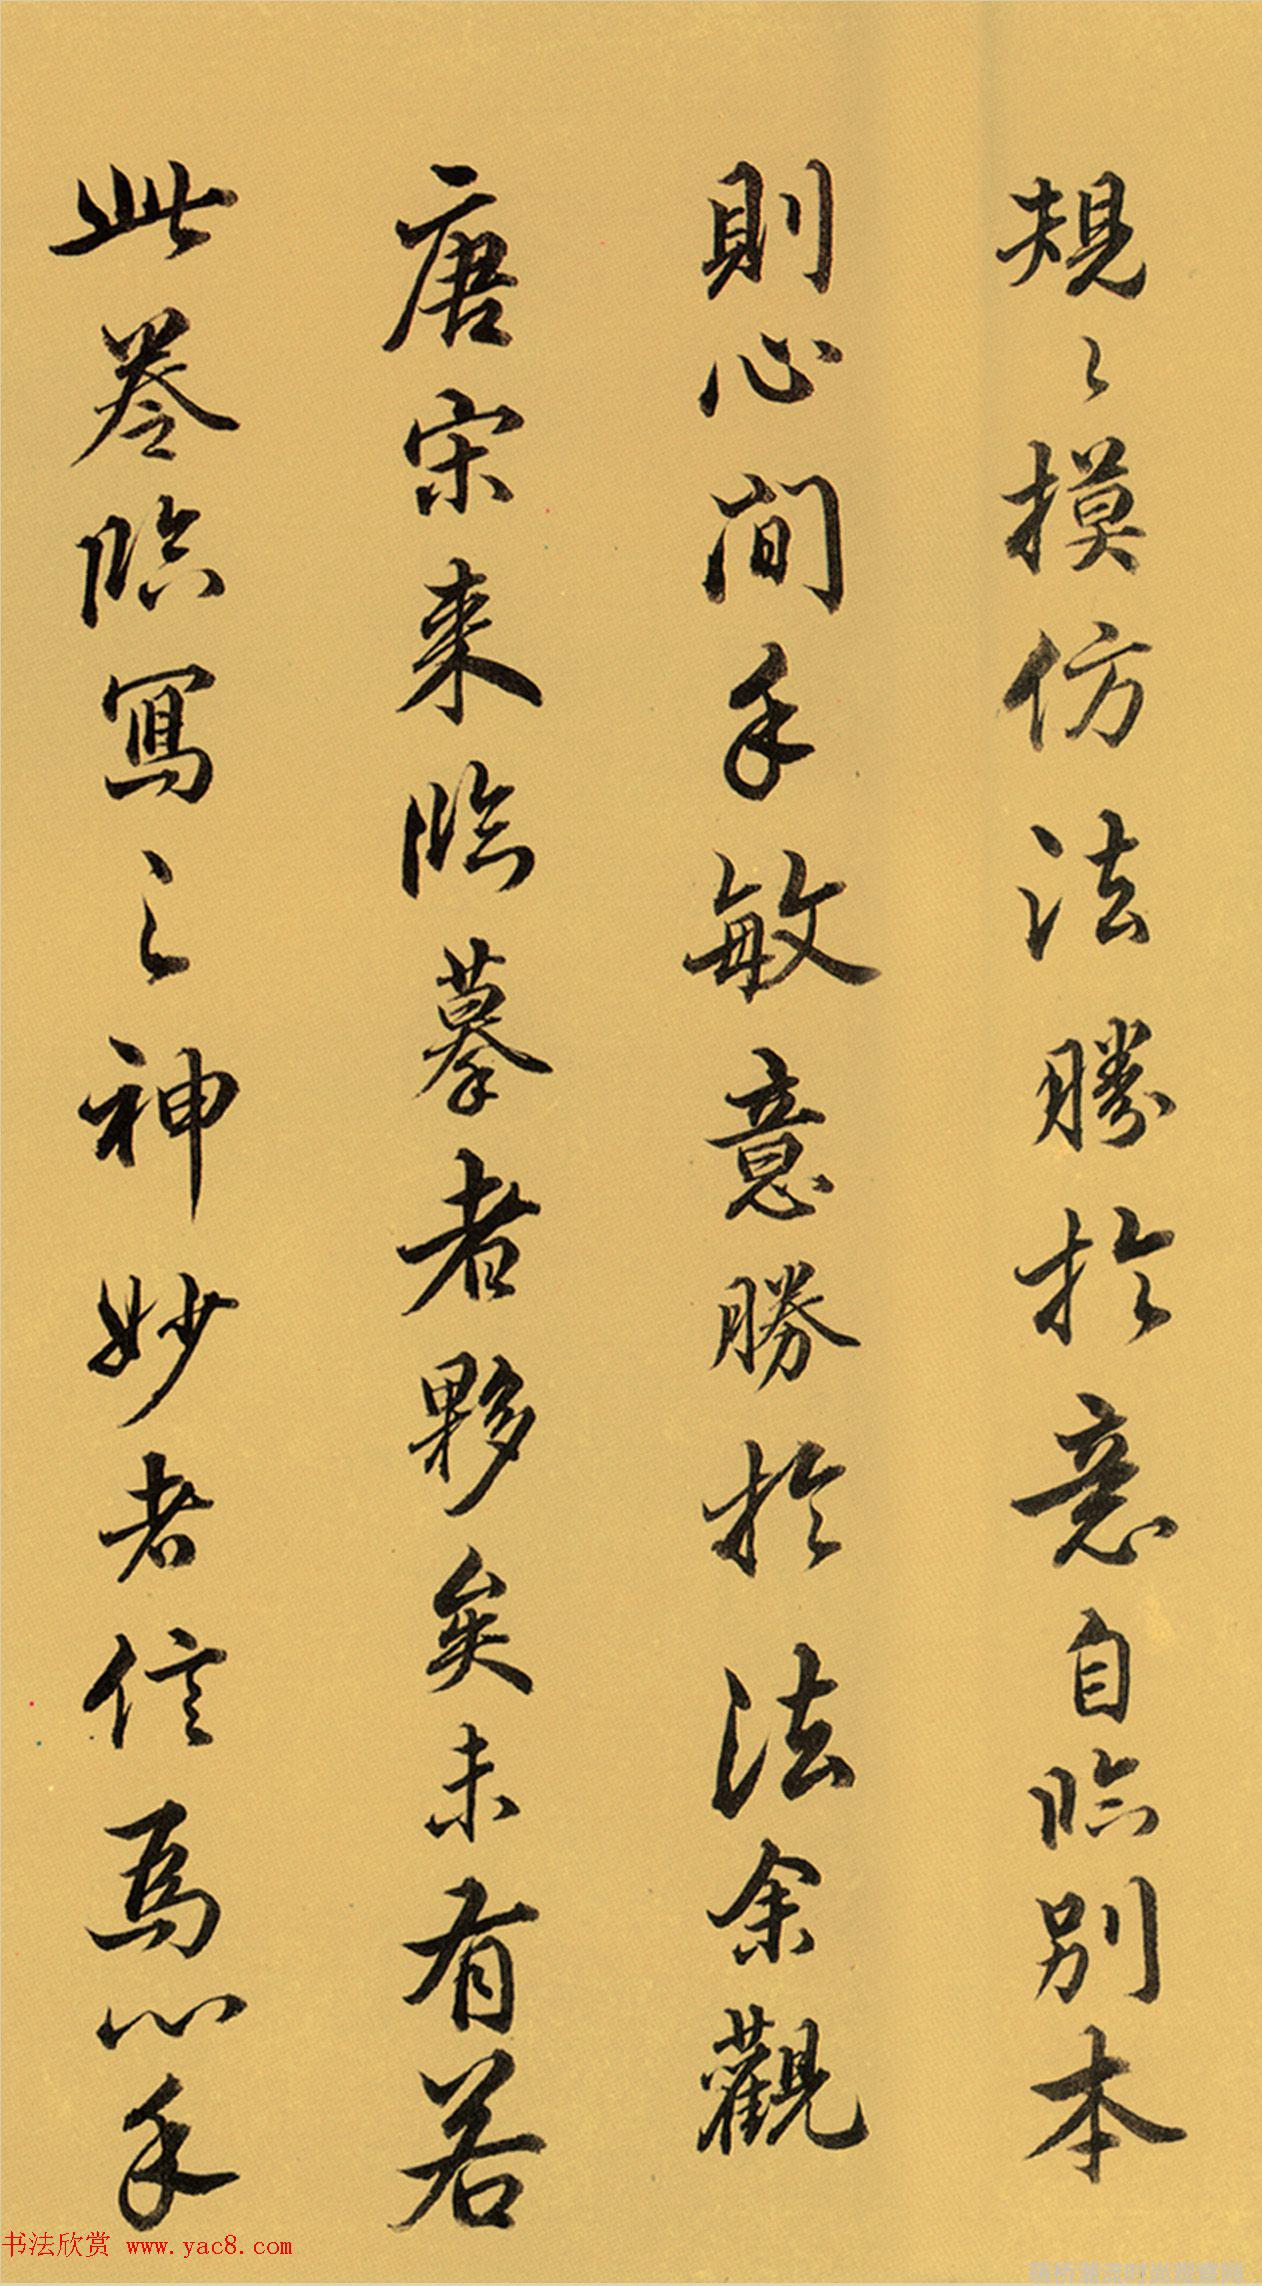 規〻摸仿法勝於意自臨别本
則心閒手敏意勝於法余觀
唐宋来臨摹者夥矣未有若
此卷臨寫之神妙者信爲心手
书法欣赏 www.yac8.com